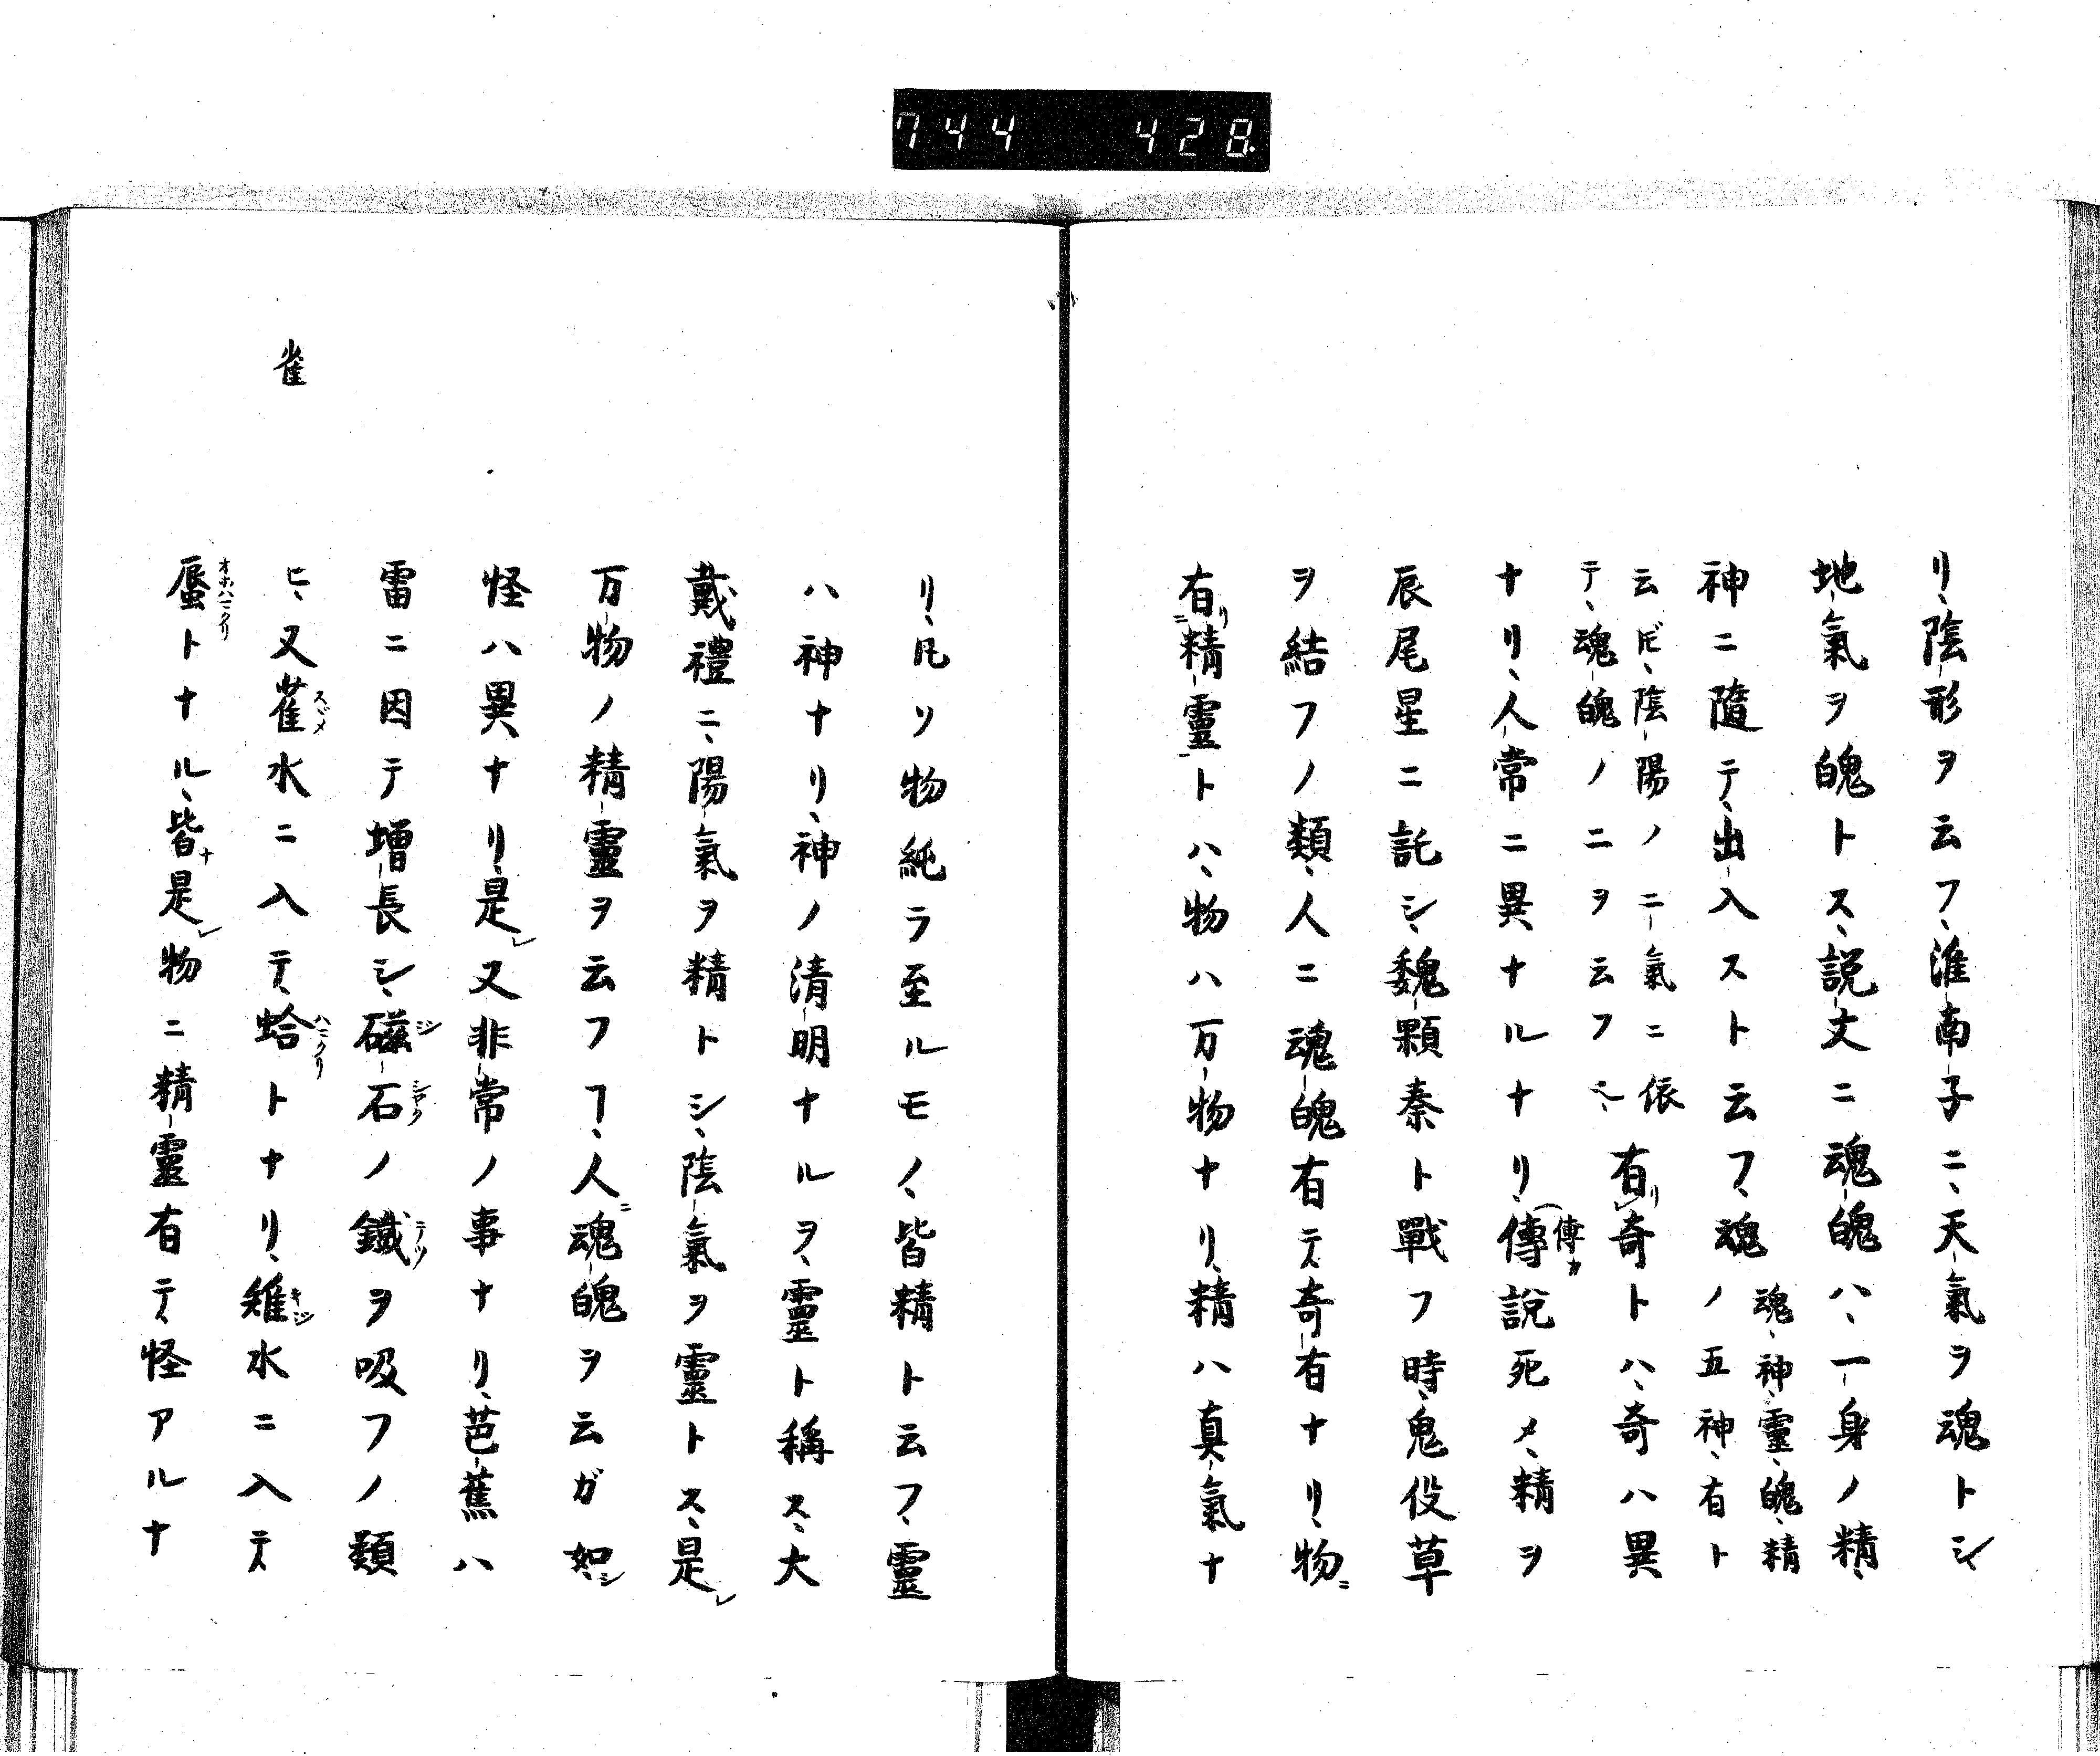 744 428
リ、陰形ヲ云フ、淮南子ニ、天氣ヲ魂トシ
地氣ヲ魄トス、説文ニ魂魄ハ、一身ノ精、
神ニ隨テ、出入ストト云フ、魂ノ五神、有ト
魂、神、靈、魄、精
云ドモ、陰陽ノ二氣ニ依
テ、魂魄ノニヲ云フ
有リ奇トハ、奇ハ異
ナリ、人常ニ異ナルナリ、傳説死メ、精ヲ
傳カ
辰尾星ニ託シ、魏顆秦ト戰フ時、鬼役草
ヲ結フノ類、人ニ魂魄有テ奇有ナリ、物ニ
有リ精靈トハ、物ハ万物ナリ、精ハ真氣ナ
リ、凡ソ物純ラ至ルモノ、皆精ト云フ、靈
ハ神ナリ、神ノ清明ナルヲ、靈ト稱ス、大
戴禮ニ、陽氣ヲ精トシ、陰氣ヲ靈トス、是レ
万物ノ精靈ヲ云フヿ、人ニ魂魄ヲ云ガ如シ
怪ハ異ナリ、是レ又非常ノ事ナリ、芭蕉ハ
雷ニ因テ増長シ、磁石ノ鐵ヲ吸フノ類
ジ シヤク テツ
ヒ、又雀水ニ入テ、蛤トナリ、雉水ニ入テ
スヾメ ハマクリ キジ
雀
蜃トナル、皆ナ是レ物ニ精靈有テ怪アルナ
オホハマクリ